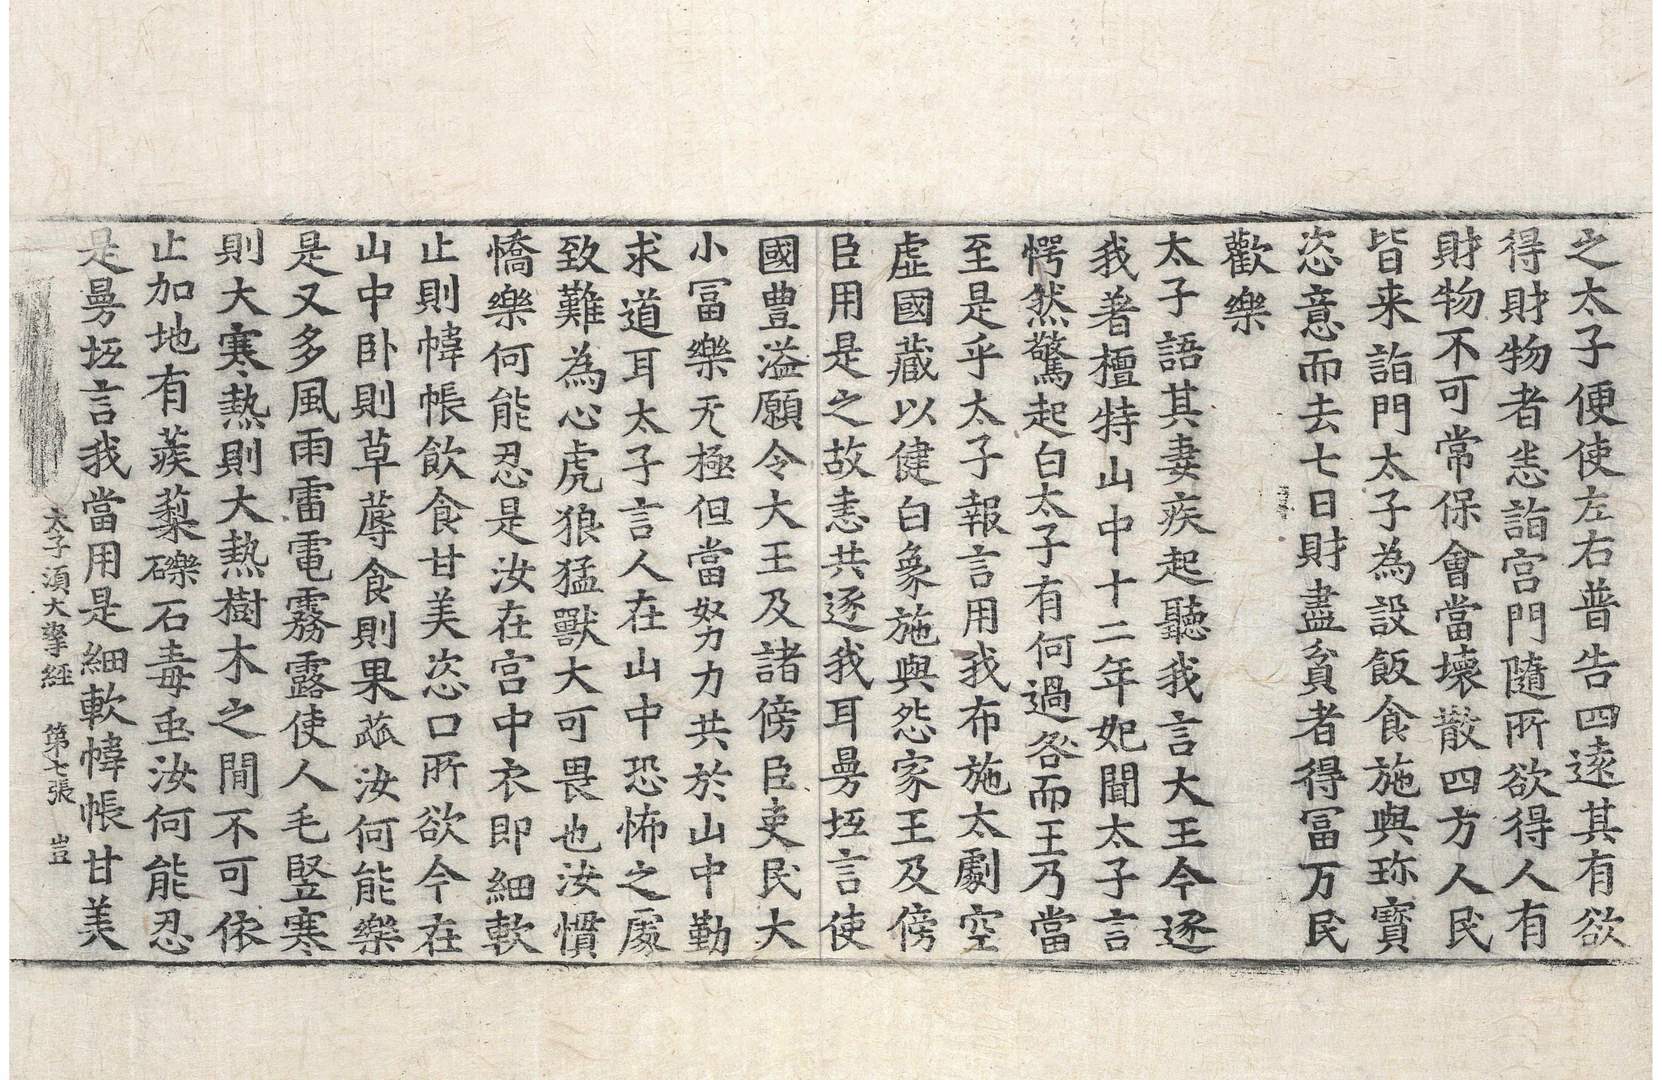 之太子便使左右普告四遠其有欲
得財物者悉詣宮門隨所欲得人有
財物不可常保會當壞散四方人民
皆来詣門太子為設飯食施與珎寶
恣意而去七日財盡貧者得冨万民
歡樂
太子語其妻疾起聽我言大王今逐
我著檀特山中十二年妃聞太子言
愕然驚起白太子有何過咎而王乃當
至是乎太子報言用我布施太劇空
虛國藏以健白象施與怨家王及傍
臣用是之故恚共逐我耳曼坻言使
國豊溢願令大王及諸傍臣吏民大
小冨樂无極但當努力共於山中勤
求道耳太子言人在山中恐怖之處
致難為心虎狼猛獸大可畏也汝慣
憍樂何能忍是汝在宮中衣即細軟
止則幃帳飲食甘美恣口所欲今在
山中卧則草蓐食則果蓏汝何能樂
是又多風雨雷電霧露使人毛竪寒
則大寒熱則大熱樹木之閒不可依
止加地有蒺䔧礫石毒䖝汝何能忍
是曼坻言我當用是細軟幃帳甘美
太子湏大拏經 第七張 豈